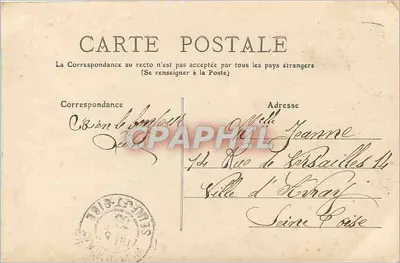 CARTE POSTALE
La Correspondance au recto n'est pas acceptée par tous les pays étrangers
(Se renseigner à la Poste)
Correspondance
Adresse
Bien le
Mlle Jeanne
14 Rue de Versailles 14
Ville d'Avray
Seine Oise
CPAPHIL.com
SEINE-ET-OISE